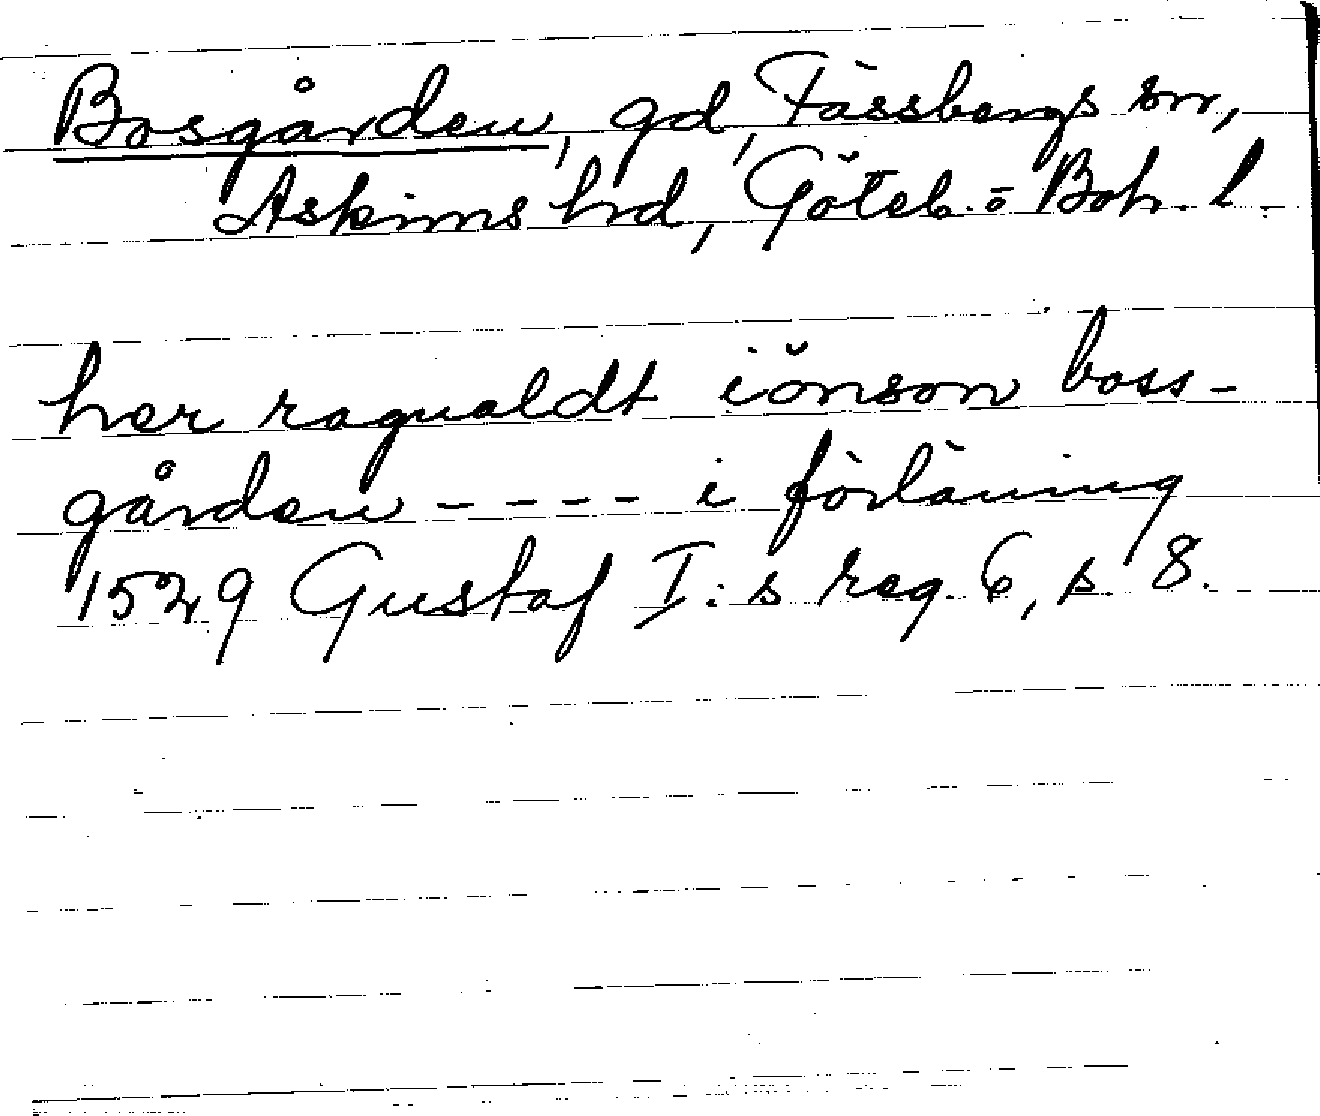 Bosgården, gd, Fässbergs sn,
Askims hd, Göteb. o Boh. l.
her ragualdt iönson boss-
gården ---- i förläning
1529 Gustaf I:s reg. 6, s. 8.